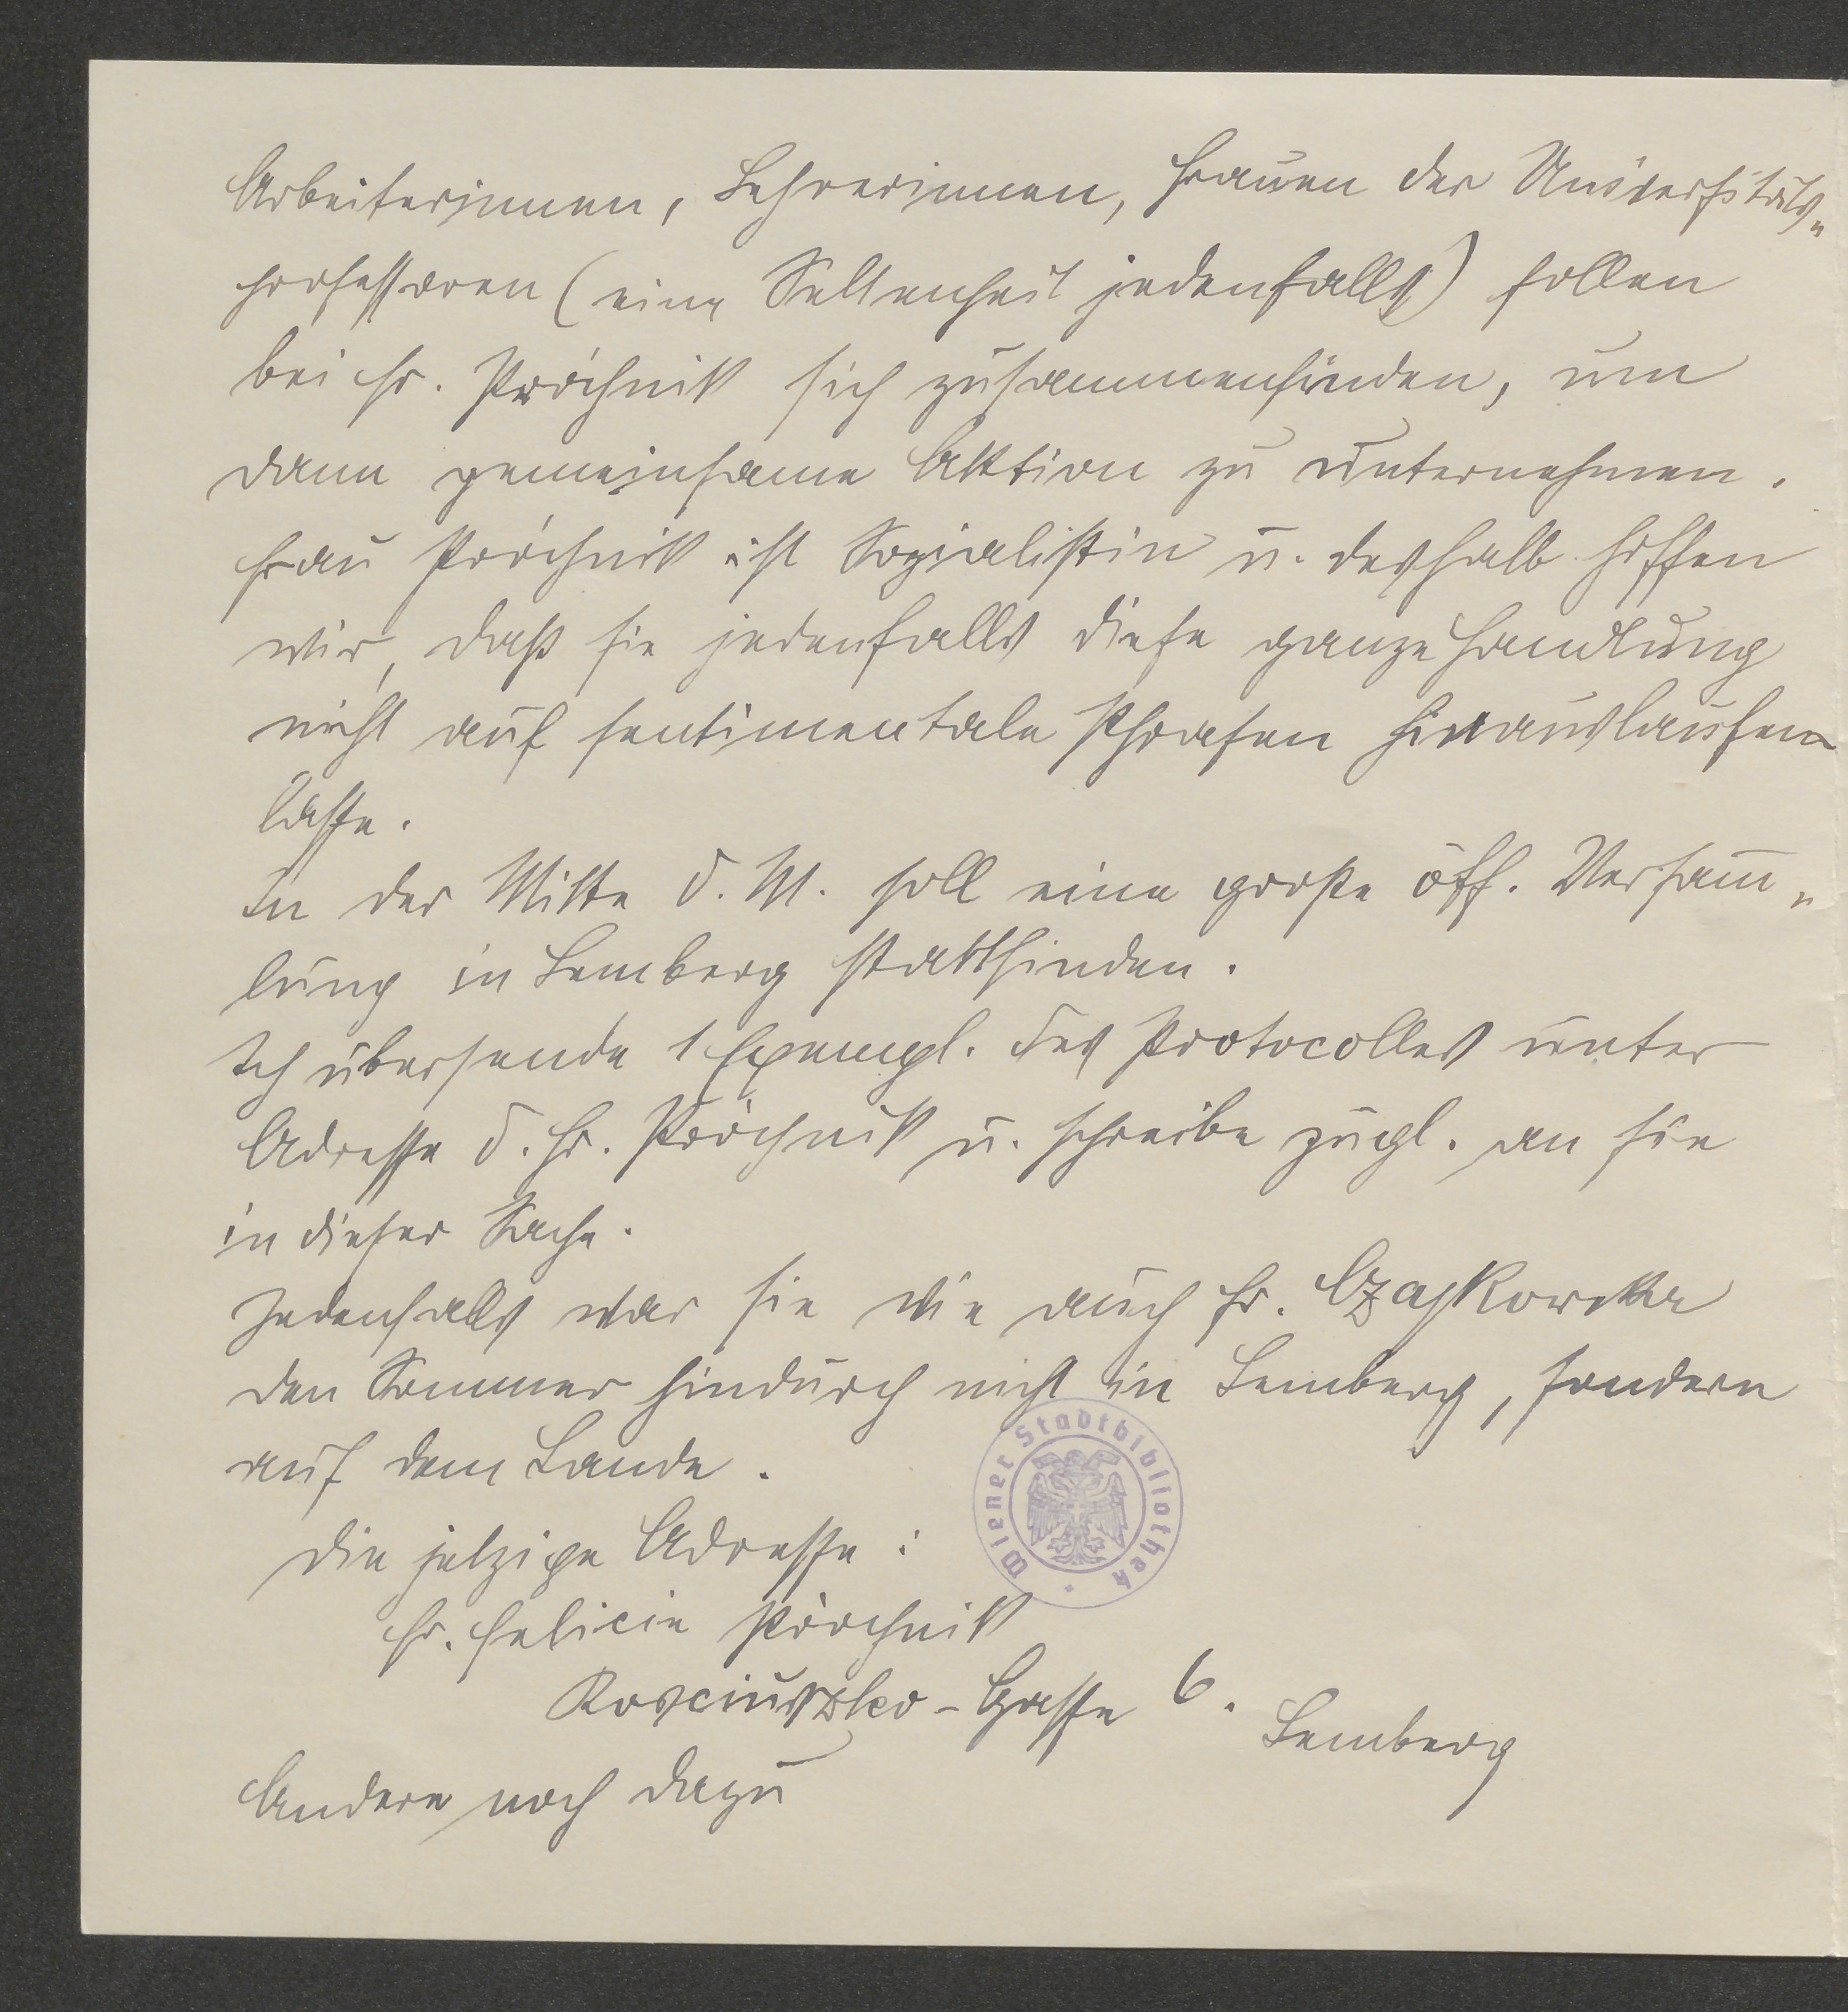 Arbeiterinnen, Lehrerinnen, Frauen der Universitäts„
professoren (eine Seltenheit jedenfalls) sollen
bei Fr. Próchnik sich zusammenfinden, um
dann gemeinsame Aktion zu unternehmen.
Frau Próchnik ist Sozialistin u. deshalb hoffen
wir, daß sie jedenfalls diese ganze Handlung
nicht auf sentimentale Phrasen hinauslaufen
lasse.
In der Mitte d. M. soll eine große öff. Versam̅„
lung in Lemberg stattfinden.
Ich übersende 1 Exempl. des Protocolles unter
Adresse d. Fr. Próchnik u. schreibe zugl. an sie
in dieser Sache.
Jedenfalls war sie wie auch Fr. Czajkowska
den Sommer hindurch nicht in Lemberg, sondern
auf dem Lande.
Die jetzige Adresse:
Fr. Felicie Próchnik
Kosciuszko-Gasse 6.
Lemberg
Andere noch dazu
Wiener Stadtbibliothek